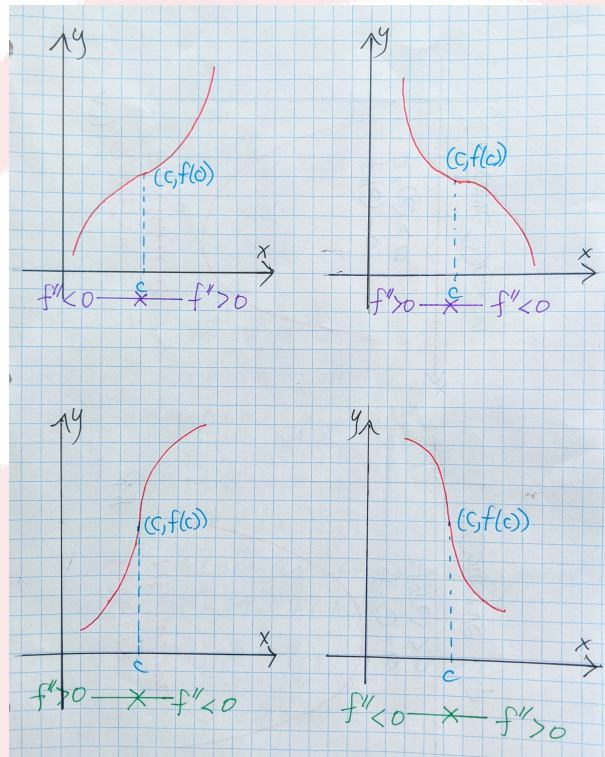 y
(c,f(c))
x
c
f''<0 —×— f''>0
y
(c,f(c))
x
c
f''>0 —×— f''<0
y
(c,f(c))
x
c
f''>0 —×— f''<0
y
(c,f(c))
x
c
f''<0 —×— f''>0